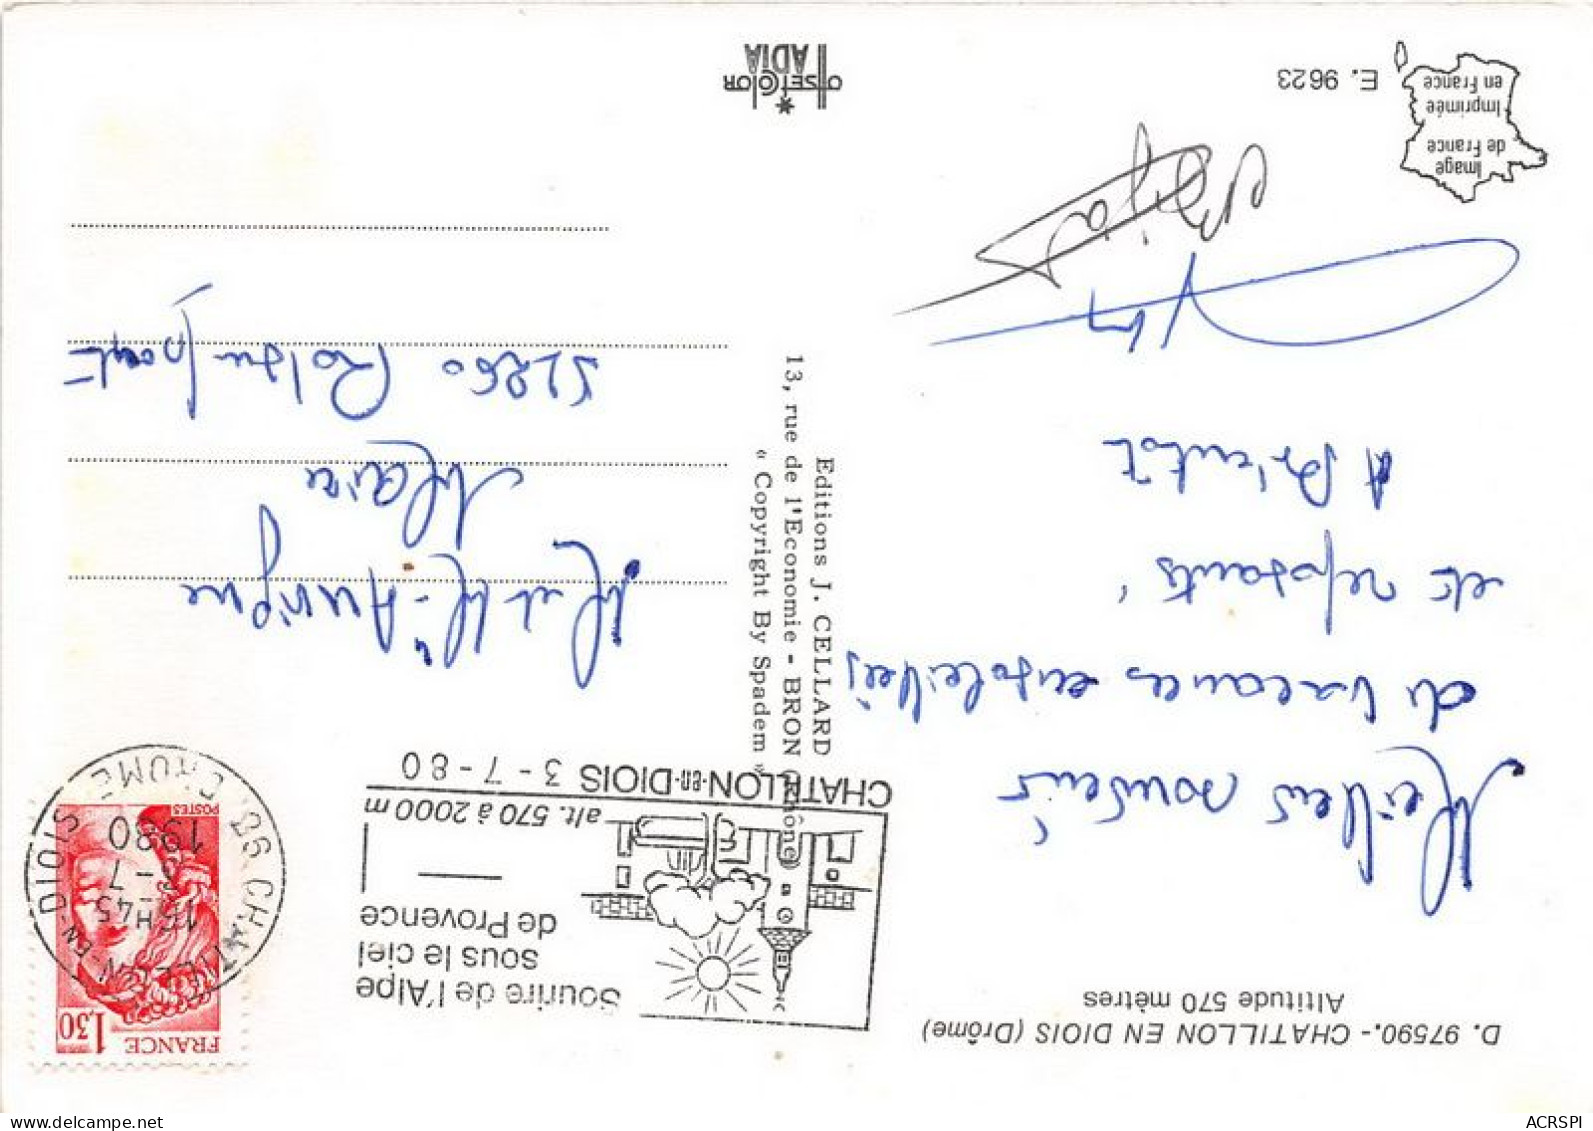 D. 97590. - CHATILLON EN DIOIS (Drôme)
Altitude 570 mètres
Meilleurs
de vacances ensoleillées
et reposantes
A bientôt
Image
de France
Imprimée
en France
E. 9623
Editions J. CELLARD
13, rue de l'Economie - BRON (Rhône)
« Copyright By Spadem »
OFFSET COLOR
IADIA
Sourire de l'Alpe
sous le ciel
de Provence
alt. 570 à 2000 m
CHATILLON-en-DIOIS 3 - 7 - 80
FRANCE
1,30
POSTES
26 CHATILLON-EN-DIOIS
16H45
3-7
1980
DROME
M et Mme Auvigne
Maire
ACRSPI